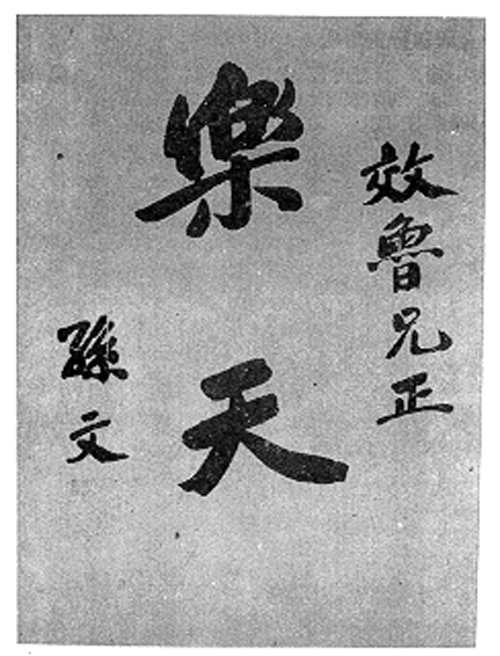 效魯兄正
樂天
孫文